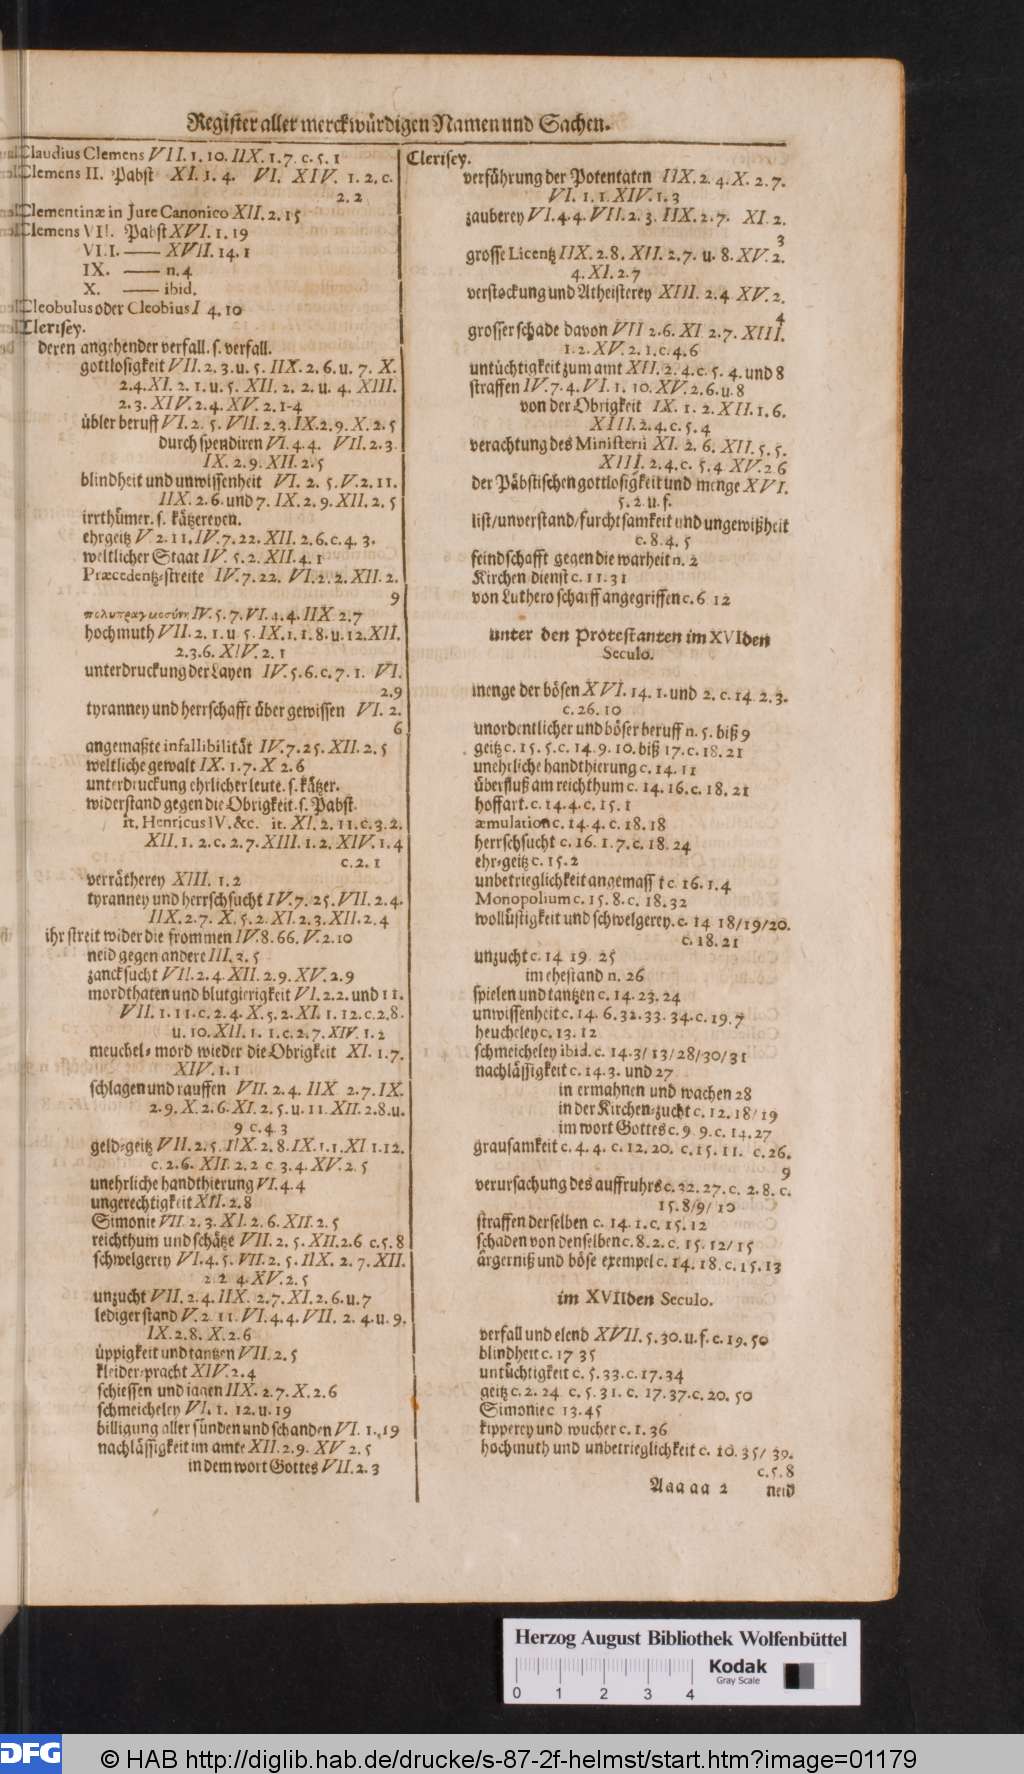 Register aller merckwürdigen Namen und Sachen.
Claudius Clemens VII. 1. 10. IIX. 1. 7. c. 5. 1
Clemens II. Pabst XI. 1. 4. VI. XIV. 1. 2. c.
2. 2
Clementinæ in Jure Canonico XII. 2. 15
Clemens VII. Pabst XVI. 1. 19
VIII. —— XVII. 14. 1
IX. —— n. 4
X. —— ibid.
Cleobulus oder Cleobius I 4. 10
Clerisey.
deren angehender verfall. s. verfall.
gottlosigkeit VII. 2. 3. u. 5. IIX. 2. 6. u. 7. X.
2. 4. XI. 2. 1. u. 5. XII. 2. 2. u. 4. XIII.
2. 3. XIV. 2. 4. XV. 2. 1-4
übler beruff VI. 2. 5. VII. 2. 3. IX. 2. 9. X. 2. 5
durch spendiren VI. 4. 4. VII. 2. 3.
IX. 2. 9. XII. 2. 5
blindheit und unwissenheit VI. 2. 5. V. 2. 11.
IIX. 2. 6. und 7. IX. 2. 9. XII. 2. 5
irrthümer. s. kätzereyen.
ehrgeitz V 2. 11. IV. 7. 22. XII. 2. 6. c. 4. 3.
weltlicher Staat IV. 5. 2. XII. 4. 1
Præcedentz-streite IV. 7. 22. VI. 2. 2. XII. 2.
9
πολυπραγμοσύνη IV. 5. 7. VI. 4. 4. IIX 2. 7
hochmuth VII. 2. 1. u 5. IX. 1. 1. 8. u. 12. XII.
2. 3. 6. XIV. 2. 1
unterdruckung der Layen IV. 5. 6. c. 7. 1. VI.
2. 9
tyranney und herrschafft über gewissen VI. 2.
6
angemaßte infallibilität IV. 7. 25. XII. 2. 5
weltliche gewalt IX. 1. 7. X 2. 6
unterdruckung ehrlicher leute. s. kätzer.
widerstand gegen die Obrigkeit. s. Pabst.
it. Henricus IV. &c. it. XI. 2. 11. c. 3. 2.
XII. 1. 2. c. 2. 7. XIII. 1. 2. XIV. 1. 4
c. 2. 1
verrätherey XIII. 1. 2
tyranney und herrschsucht IV. 7. 25. VII. 2. 4.
IIX. 2. 7. X. 5. 2. XI. 2. 3. XII. 2. 4
ihr streit wider die frommen IV. 8. 66. V. 2. 10
neid gegen andere III. 2. 5
zancksucht VII. 2. 4. XII. 2. 9. XV. 2. 9
mordthaten und blutgierigkeit VI. 2. 2. und 11.
VII. 1. 11. c. 2. 4. X. 5. 2. XI. 1. 12. c. 2. 8.
u. 10. XII. 1. 1. c. 2. 7. XIV. 1. 2
meuchel-mord wieder die Obrigkeit XI. 1. 7.
XIV. 1. 1
schlagen und rauffen VII. 2. 4. IIX 2. 7. IX.
2. 9. X. 2. 6. XI. 2. 5. u. 11. XII. 2. 8. u.
9 c. 4. 3
geld-geitz VII. 2. 5. IIX. 2. 8. IX. 1. 1. XI 1. 12.
c. 2. 6. XII. 2. 2 c. 3. 4. XV. 2. 5
unehrliche handthierung VI. 4. 4
ungerechtigkeit XII. 2. 8
Simonie VII 2. 3. XI. 2. 6. XII. 2. 5
reichthum und schätze VII. 2. 5. XII. 2. 6 c. 5. 8
schwelgerey VI. 4. 5. VII. 2. 5. IIX. 2. 7. XII.
2 2 4. XV. 2. 5
unzucht VII. 2. 4. IIX. 2. 7. XI. 2. 6. u. 7
lediger stand V. 2 11. VI. 4. 4. VII. 2. 4. u. 9.
IX. 2. 8. X. 2. 6
üppigkeit und tantzen VII. 2. 5
kleider-pracht XIV. 2. 4
schiessen und iagen IIX. 2. 7. X. 2. 6
schmeicheley VI. 1. 12. u. 19
billigung aller sünden und schanden VI. 1. 19
nachlässigkeit im amte XII. 2. 9. XV 2. 5
in dem wort Gottes VII. 2. 3
Clerisey.
verführung der Potentaten IIX. 2. 4. X. 2. 7.
VI. 1. 1. XIV. 1. 3
zauberey VI. 4. 4. VII. 2. 3. IIX. 2. 7. XI. 2.
3
grosse Licentz IIX. 2. 8. XII. 2. 7. u. 8. XV. 2.
4. XI. 2. 7
verstockung und Atheisterey XIII. 2. 4 XV. 2.
4
grosser schade davon VII 2. 6. XI 2. 7. XIII.
1. 2. XV. 2. 1. c. 4. 6
untüchtigkeit zum amt XII. 2. 4. c. 5. 4. und 8
straffen IV. 7. 4. VI. 1. 10. XV. 2. 6. u. 8
von der Obrigkeit IX. 1. 2. XII. 1. 6.
XIII. 2. 4. c. 5. 4
verachtung des Ministerii XI. 2. 6. XII. 5. 5.
XIII. 2. 4. c. 5. 4 XV. 2 6
der Päbstischen gottlosigkeit und menge XVI.
5. 2. u. f.
list/unverstand/furchtsamkeit und ungewißheit
c. 8. 4. 5
feindschafft gegen die warheit n. 2
Kirchen dienst c. 11. 31
von Luthero scharff angegriffen c. 6 12
unter den Protestanten im XVIden
Seculo.
menge der bösen XVI. 14. 1. und 2. c. 14. 2. 3.
c. 26. 10
unordentlicher und böser beruff n. 5. biß 9
geitz c. 15. 5. c. 14. 9. 10. biß 17. c. 18. 21
unehrliche handthierung c. 14. 11
überfluß am reichthum c. 14. 16. c. 18. 21
hoffart. c. 14. 4. c. 15. 1
æmulation c. 14. 4. c. 18. 18
herrschsucht c. 16. 1. 7. c. 18. 24
ehr-geitz c. 15. 2
unbetrieglichkeit angemasst c. 16. 1. 4
Monopolium c. 15. 8. c. 18. 32
wollüstigkeit und schwelgerey. c. 14 18/19/20.
c. 18. 21
unzucht c. 14 19. 25
im ehestand n. 26
spielen und tantzen c. 14. 23. 24
unwissenheit c. 14. 6. 32. 33. 34. c. 19. 7
heucheley c. 13. 12
schmeicheley ibid. c. 14. 3/ 13/28/30/31
nachlässigkeit c. 14. 3. und 27
in ermahnen und wachen 28
in der Kirchen-zucht c. 12. 18/19
im wort Gottes c. 9. 9. c. 14. 27
grausamkeit c. 4. 4. c. 12. 20. c. 15. 11. c. 26.
9
verursachung des auffruhrs c. 22. 27. c. 2. 8. c.
15. 8/9/ 10
straffen derselben c. 14. 1. c. 15. 12
schaden von denselben c. 8. 2. c. 15. 12/ 15
ärgerniß und böse exempel c. 14. 18. c. 15. 13
im XVIIden Seculo.
verfall und elend XVII. 5. 30. u. f. c. 19. 50
blindheit c. 17 35
untüchtigkeit c. 5. 33. c. 17. 34
geitz c. 2. 24 c. 5. 31. c. 17. 37. c. 20. 50
Simonie c 13. 45
kipperey und wucher c. 1. 36
hochmuth und unbetrieglichkeit c. 10. 35/ 39.
c. 5. 8
Aaa aa 2 neid
Herzog August Bibliothek Wolfenbüttel
Kodak
Gray Scale
0 1 2 3 4
DFG
© HAB http://diglib.hab.de/drucke/s-87-2f-helmst/start.htm?image=01179